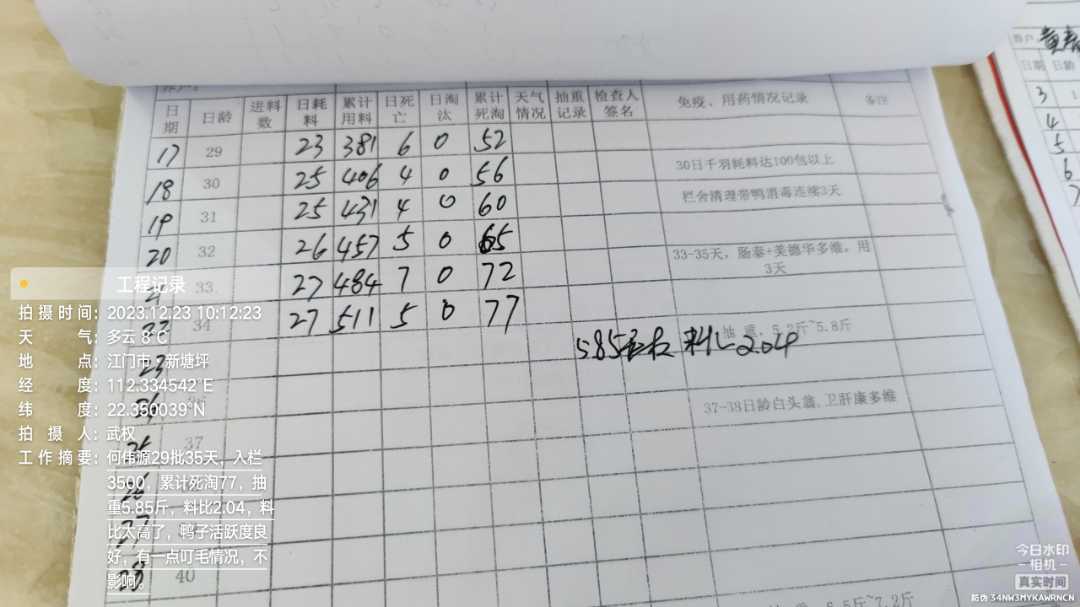 日期 日龄 进料数 日耗料 累计用料 日死亡 日淘汰 累计死淘 天气情况 抽重记录 检查人签名 免疫、用药情况记录 备注
17 29 23 381 6 0 52
18 30 25 406 4 0 56 30日千羽耗料达100包以上
19 31 25 431 4 0 60 栏舍清理带鸭消毒连续3天
20 32 26 457 5 0 65
33-35天，肠泰+美德华多维，用3天
21 33 27 484 7 0 72
22 34 27 511 5 0 77 抽重，5.2斤~5.8斤
23 5.85 料比2.04
37-38日龄白头翁，卫肝康多维
25 37
26
27
28 40
5.5斤~7.2斤
客户
日期 日龄
3
4
5
6
7
工程记录
拍摄时间：2023.12.23 10:12:23
天气：多云 8℃
地点：江门市·新塘坪
经度：112.334542°E
纬度：22.350039°N
拍摄人：武权
工作摘要：何伟源29批35天，入栏
3500，累计死淘77，抽
重5.85斤，料比2.04，料
比太高了，鸭子活跃度良
好，有一点叮毛情况，不
影响。
今日水印
相机
真实时间
防伪 34NW3MYKAWRNCN